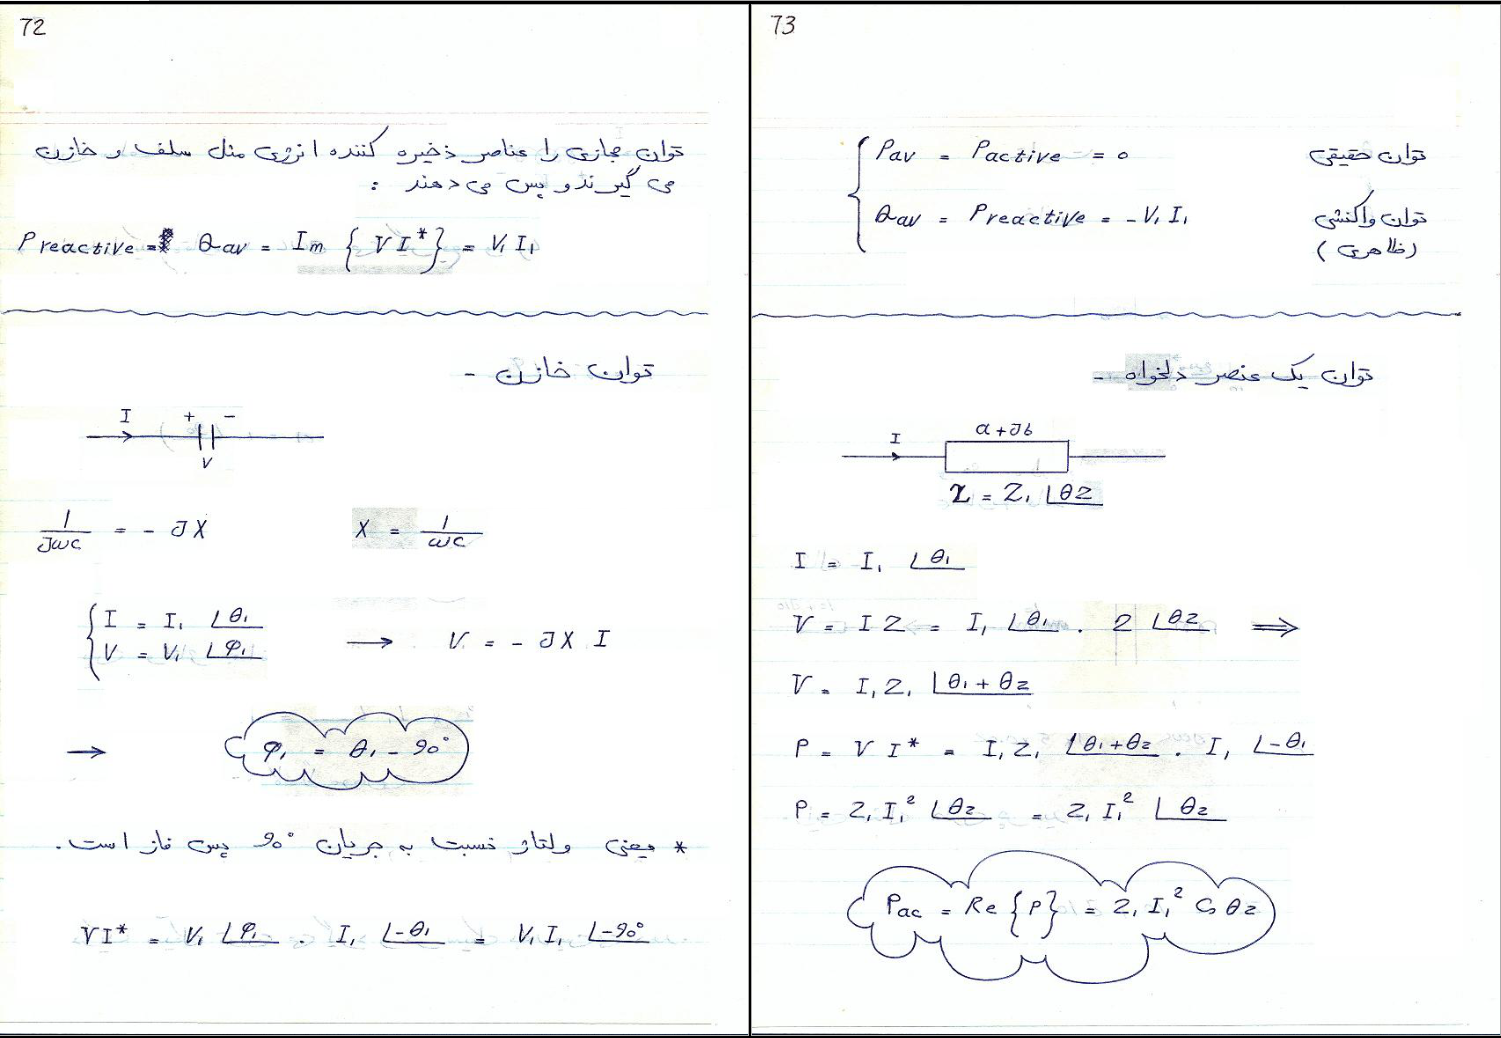 72
توان مجازی را عناصر ذخیره کننده انرژی مثل سلف و خازن
می گیرند و پس می دهند :
Preactive = Qav = Im { VI* } = V₁ I₁
توان خازن -
I + -
V
1/Jωc = - JX X = 1/ωc
I = I₁ ∠θ₁
V = V₁ ∠φ₁ → V = - JX I
→ φ₁ = θ₁ - 90°
* یعنی ولتاژ نسبت به جریان 90° پس فاز است.
VI* = V₁ ∠φ₁ . I₁ ∠-θ₁ = V₁ I₁ ∠-90°
73
Pav = Pactive = 0 توان حقیقی
Qav = Preactive = -V₁ I₁ توان واکنشی
(ظاهری)
توان یک عنصر دلخواه -
a+Jb
I
Z = Z₁ ∠θz
I = I₁ ∠θ₁
V = I Z = I₁ ∠θ₁ . Z ∠θz ⟹
V = I₁ Z₁ ∠θ₁ + θz
P = V I* = I₁ Z₁ ∠θ₁+θz . I₁ ∠-θ₁
P = Z₁ I₁² ∠θz = Z₁ I₁² ∠θz
Pac = Re {P} = Z₁ I₁² Cs θz